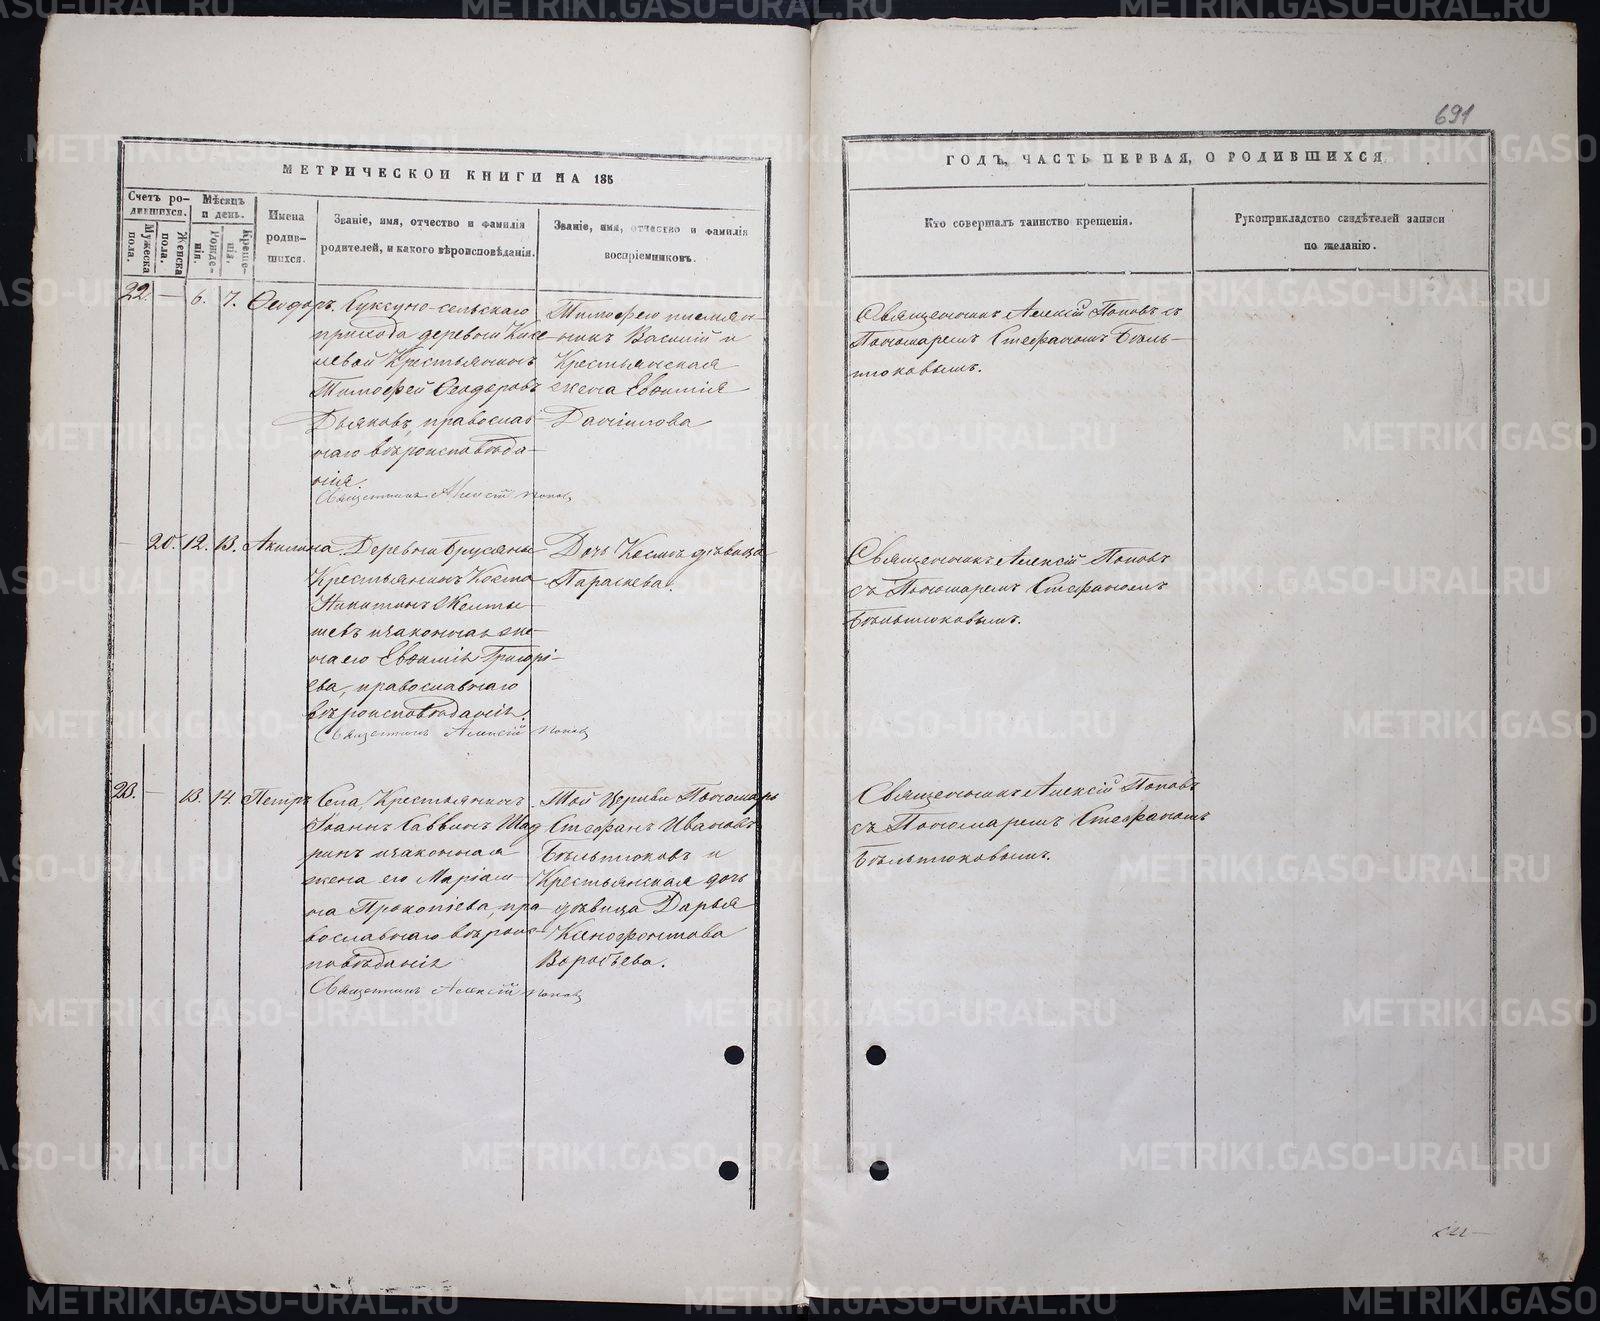 691
МЕТРИЧЕСКОЙ КНИГИ НА 185
ГОДЪ, ЧАСТЬ ПЕРВАЯ, О РОДИВШИХСЯ.
Счетъ ро-
дившихся.
Мужеска
пола.
Женска
пола.
Мѣсяцъ
и день.
Рожде-
нія.
Креще-
нія.
Имена
родив-
шихся.
Званіе, имя, отчество и фамилія
родителей, и какого вѣроисповѣданія.
Званіе, имя, отчество и фамилія
воспріемниковъ.
Кто совершалъ таинство крещенія.
Рукоприкладство свидѣтелей записи
по желанію.
22. — 6. 7. Ѳеодоръ.
Суксуно-сельскаго
прихода деревни Кисе-
левой Крестьянинъ
Тимофей Ѳеодоровъ
православ-
наго вѣроисповѣда-
нія.
Священникъ Алексій Поповъ
Тимофея племян-
никъ Василій и
Крестьянская
жена Евѳимія
Даніилова
Священникъ Алексій Поповъ съ
Пономаремъ Стефаномъ Бѣль-
тюковымъ.
— 20. 12. 13. Акилина.
Деревни Брусяны
Крестьянинъ Косма
Никитинъ Желты-
шевъ и законная же-
на его Евѳимія Григорі-
ева, православнаго
вѣроисповѣданія.
Священникъ Алексій Поповъ
Дочь Космы дѣвица
Параскева.
Священникъ Алексій Поповъ
съ Пономаремъ Стефаномъ
Бѣльтюковымъ.
23. — 13. 14. Петръ
Села Крестьянинъ
Іоаннъ Саввинъ Шад
ринъ и законная
жена его Маріам-
на Прокопіева, пра-
вославнаго вѣроис-
повѣданія
Священникъ Алексій Поповъ
Той Церкви Пономарь
Стефанъ Ивановъ
Бѣльтюковъ и
Крестьянская дочь
дѣвица Дарья
Ксенофонтова
Воробьева.
Священникъ Алексій Поповъ
съ Пономаремъ Стефаномъ
Бѣльтюковымъ.
METRIKI.GASO-URAL.RU